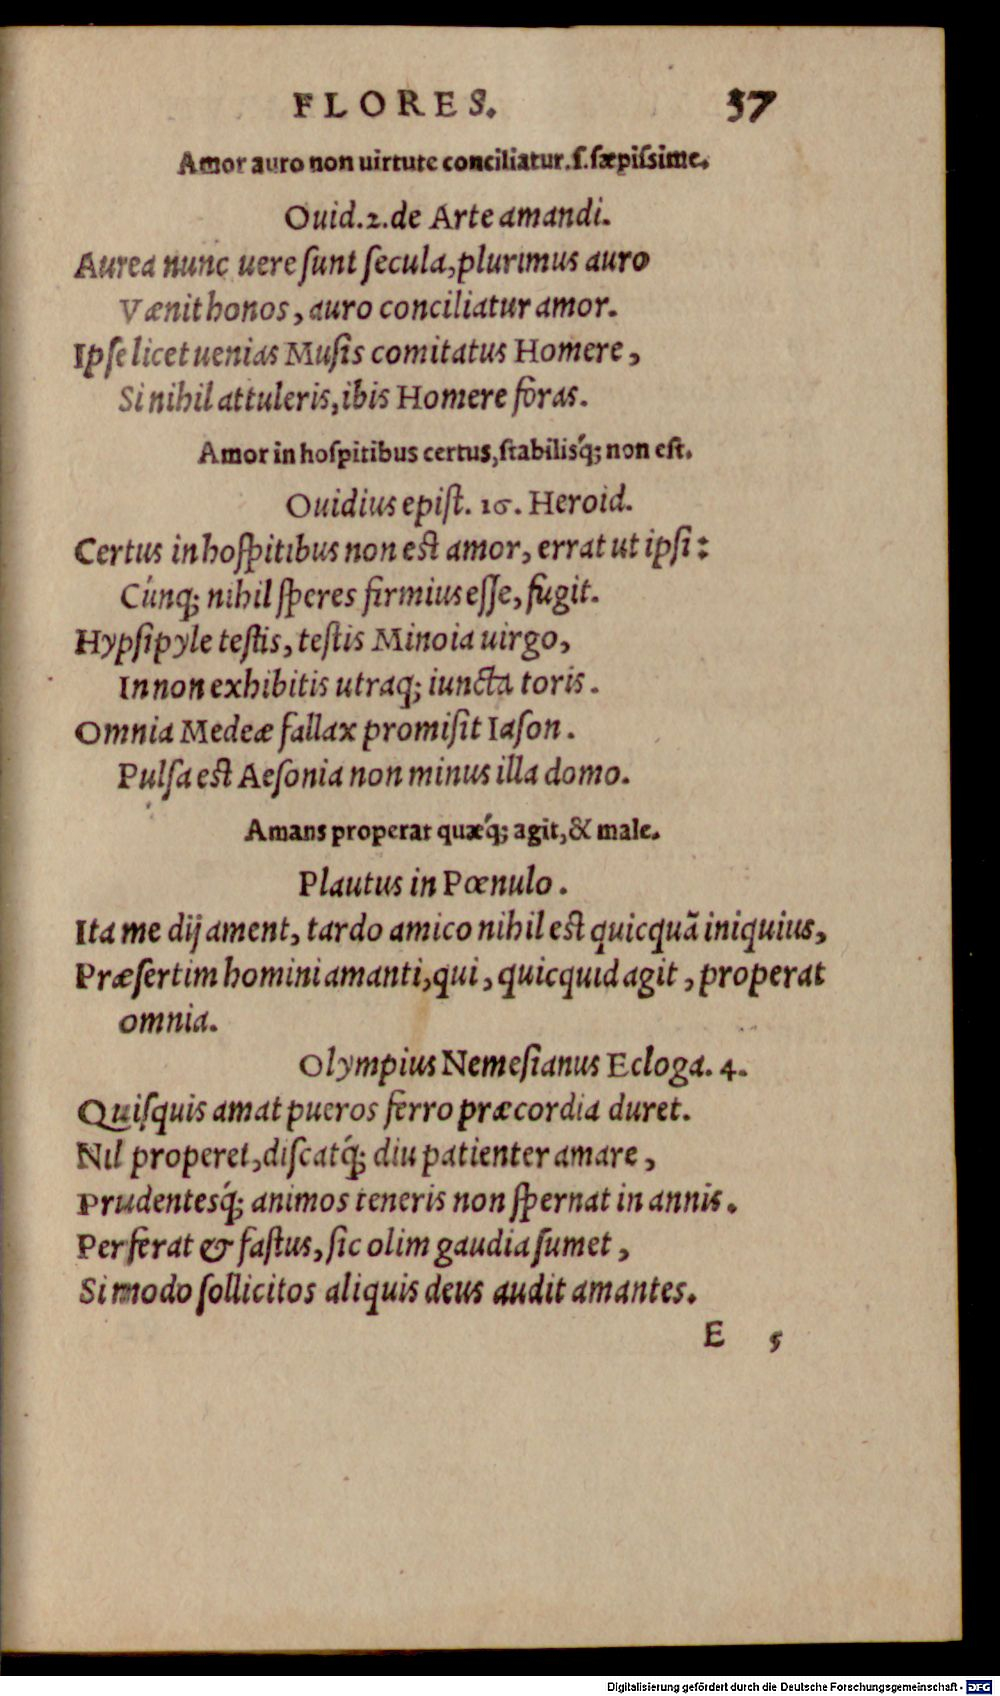 FLORES. 37
Amor auro non uirtute conciliatur.ſ.ſæpiſsime.
Ouid.2.de Arte amandi.
Aurea nunc uere ſunt ſecula,plurimus auro
Vænit honos, auro conciliatur amor.
Ipſe licet uenias Muſis comitatus Homere,
Si nihil attuleris,ibis Homere foras.
Amor in hoſpitibus certus,ſtabilisq́; non eſt.
Ouidius epiſt. 16. Heroid.
Certus in hoſpitibus non eſt amor, errat ut ipſi:
Cúnq; nihil ſperes firmius eſſe, fugit.
Hypſipyle teſtis, teſtis Minoia uirgo,
In non exhibitis utraq; iuncta toris.
Omnia Medeæ fallax promiſit Iaſon.
Pulſa eſt Aeſonia non minus illa domo.
Amans properat quæq́; agit,& male.
Plautus in Pœnulo.
Ita me dij ament, tardo amico nihil eſt quicquã iniquius,
Præſertim homini amanti,qui, quicquid agit, properat
omnia.
Olympius Nemeſianus Ecloga. 4.
Quiſquis amat pueros ferro præcordia duret.
Nil properet,diſcatq́; diu patienter amare,
Prudentesq́; animos teneris non ſpernat in annis.
Perferat & faſtus, ſic olim gaudia ſumet,
Si modo ſollicitos aliquis deus audit amantes.
E 5
Digitalisierung gefördert durch die Deutsche Forschungsgemeinschaft - DFG